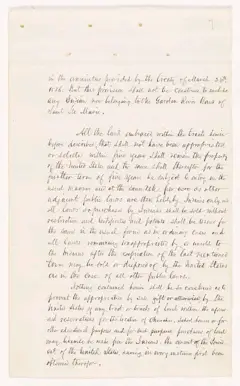 in the manner provided by the treaty of March 28th
1836. But this provision shall not be construed to include
any Indian now belonging to the Garden River Band of
Sault Ste. Marie.
All the land embraced within the tracts herein
before described, that shall not have been appropriated
or selected within five years shall remain the property
of the United States and the same shall thereafter for the
further term of five years be subject to entry in the
usual manner and at the same rate per acre as other
adjacent public lands are then held, by Indians only and
all lands so purchased by Indians shall be sold without
restriction and certificates and patents shall be issued for
the same in the usual form as in ordinary cases and
all lands remaining unappropriated by or unsold to
the Indians after the expiration of the last mentioned
term may be sold or disposed of by the United States
as in the case of all other public lands.
Nothing contained herein shall be so construed as to
prevent the appropriation by sale gift or otherwise by the
United States of any tract or tracts of land within the afore
said reservations for the location of churches school houses or for
other educational purposes and for such purposes purchases of land
may be made from the Indians the consent of the
of the United States having in every instance first been
obtained therefor.